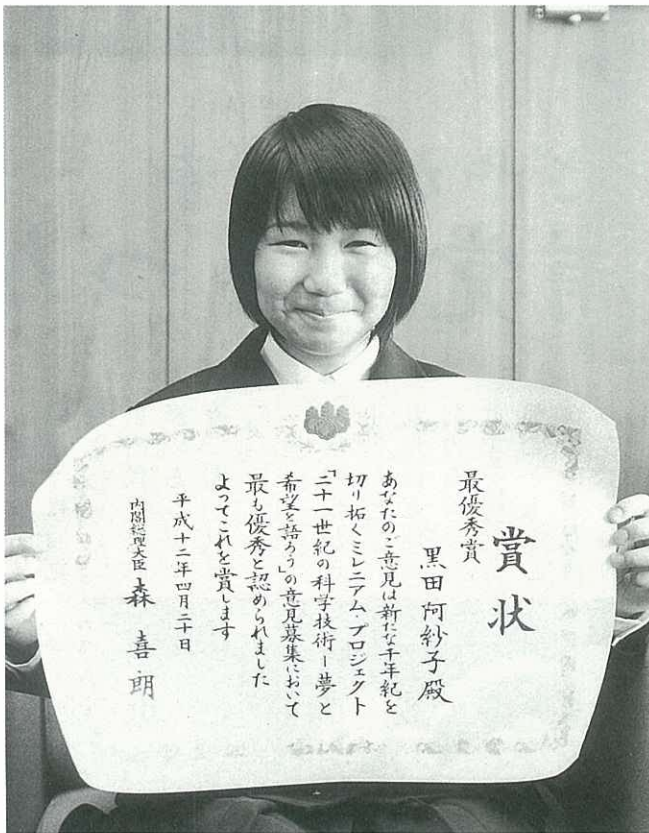 賞状
最優秀賞
黒田阿紗子殿
あなたのご意見は新たな千年紀を
切り拓くミレニアム・プロジェクト
「二十一世紀の科学技術ー夢と
希望を語ろう」の意見募集において
最も優秀と認められました
よってこれを賞します
平成十二年四月二十日
内閣総理大臣 森喜朗